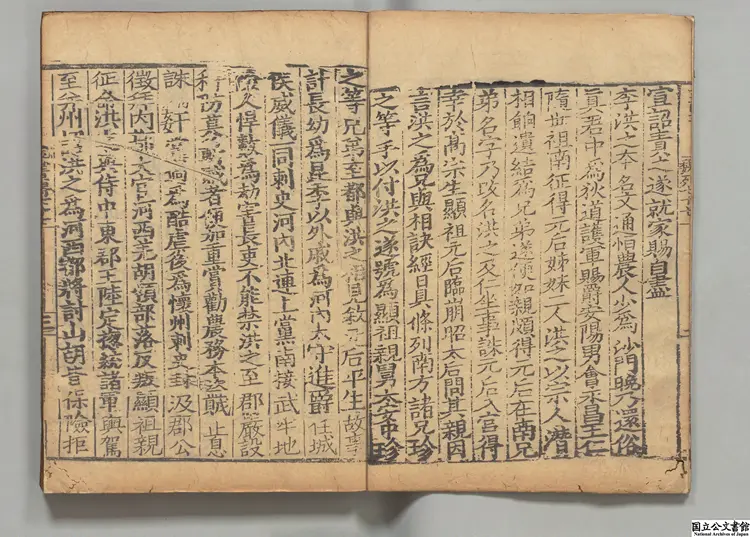 宣詔責公之遂就家賜自盡
李洪之本名文通恒農人少爲沙門晚乃還俗
真君中爲狄道護軍賜爵安陽男會永昌王仁
隨世祖南征得元后姊妹二人洪之以宗人潛
相餉遺結爲兄弟遂便如親頗得元后在南兄
弟名字乃改名洪之及仁坐事誅元后入宮得
幸於高宗生顯祖元后臨崩昭太后問其親因
言洪之爲兄與相訣經日具條列南方諸兄珍
之等手以付洪之遂號爲顯祖親舅太安中珍
之等兄弟至都與洪之相見敘元后平生故事
計長幼爲昆季以外戚爲河內太守進爵任城
侯威儀一同刺史河內北連上黨南接武牢地
險人悍數爲劫害長吏不能禁洪之至郡嚴設
科防募斬賊者便加重賞勸農務本盜賊止息
誅鋤姦黨過爲酷虐後爲懷州刺史封汲郡公
徵拜內都大官河西羌胡領部落反叛顯祖親
征命洪之與侍中東郡王陸定總統諸軍輿駕
至并州詔洪之爲河西都將討山胡皆保險拒
国立公文書館
National Archives of Japan